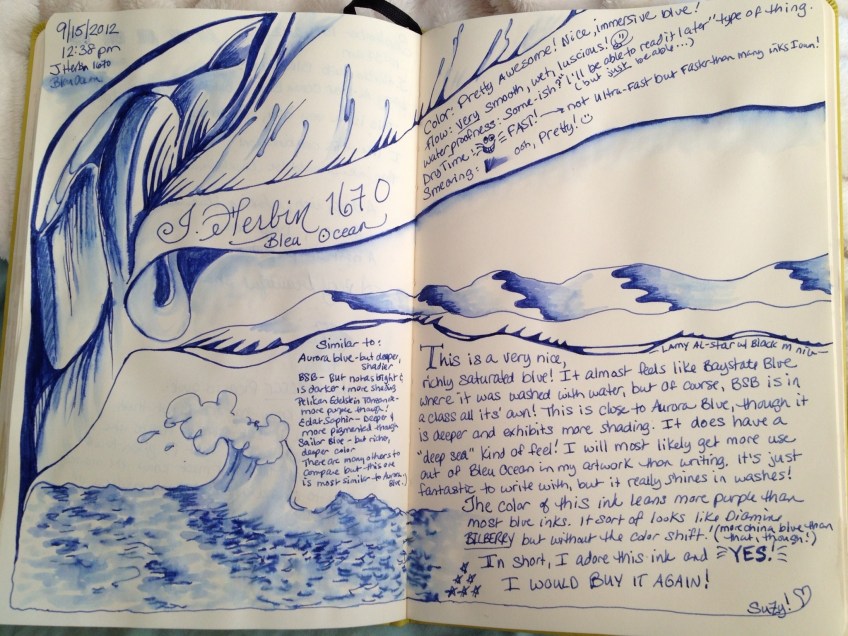 9/15/2012
12:38 pm
J Herbin 1670
Bleu Ocean
Color: Pretty Awesome! Nice, immersive blue!
Flow: very smooth, wet, luscious!
Waterproofness: some-ish? "I'll be able to read it later" type of thing.
(but just be able...)
Dry Time: FAST! → not ultra-fast but Faster than many inks I own!
Smearing: ooh, Pretty!
J. Herbin 1670
Bleu Ocean
Similar to:
Aurora blue - but deeper,
shadier
BSB - But not as bright &
is darker & more shading
Pelikan Edelstein Tanzanite -
more purple though!
Edelst Saphir - Deeper &
more pigmented though
Sailor Blue - but richer,
deeper color
There are many others to
compare but this one
is most similar to Aurora
Blue :)
Lamy Al-Star w/ Black m nib
This is a very nice,
richly saturated blue! It almost feels like Baystate Blue
where it was washed with water, but of course, BSB is in
a class all its' own! This is close to Aurora Blue, though it
is deeper and exhibits more shading. It does have a
"deep sea" kind of feel! I will most likely get more use
out of Bleu Ocean in my artwork than writing. It's just
fantastic to write with, but it really shines in washes!
The color of this ink leans more purple than
most blue inks. It sort of looks like Diamine
BILBERRY but without the color shift. (more china blue than
that, though!)
In short, I adore this ink and YES!
I WOULD BUY IT AGAIN!
Suzy!